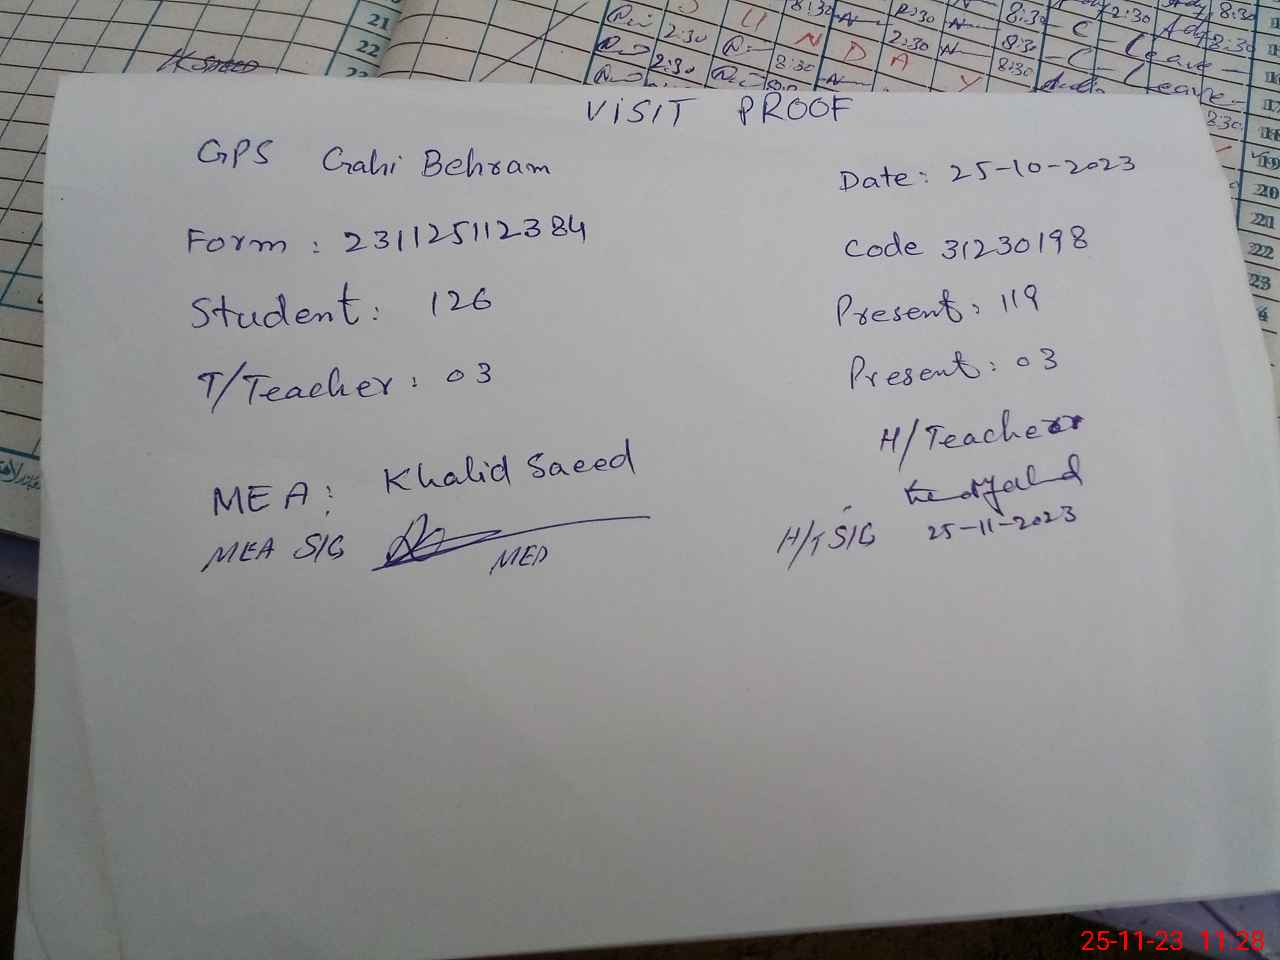 21
22
23
8:30 2:30 8:30 2:30 8:30
2:30 U N 2:30 8:30 C Leave 8:30
2:30 8:30 D A Y 8:30 C Leave
8:30
19
20
21
22
23
VISIT PROOF
GPS Gahi Behram
Date: 25-10-2023
Form: 231125112384
Code 31230198
Student: 126
Present: 119
T/Teacher: 03
Present: 03
H/Teacher
MEA: Khalid Saeed
MEA SIG
MED
H/T SIG 25-11-2023
25-11-23 11:28